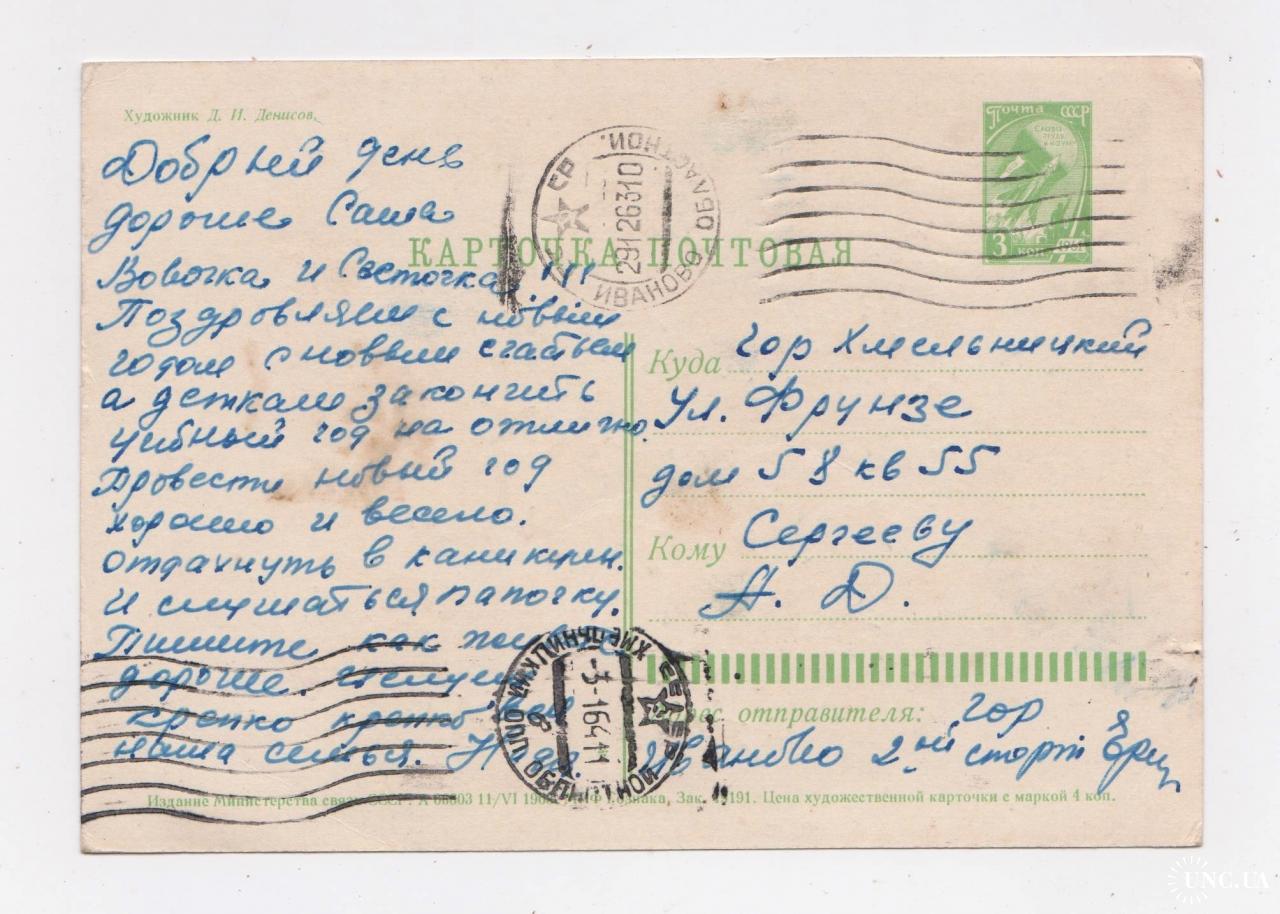 Художник Д. И. Денисов.
Почта СССР
СЛАВА ТРУДУ И НАУКЕ
3 коп 1961
КАРТОЧКА ПОЧТОВАЯ
ИВАНОВО ОБЛАСТНОЙ
29126310
Добрый день
дорогие Саша
Вовочка и Светочка !!!
Поздровляем с новым
годом с новым счастьем
а деткам закончить
учебный год на отлично.
Провести новый год
хорошо и весело.
отдахнуть в каникули.
И слушаться папочку.
Пишите как
дорогие.
крепко
наша семья.
Куда гор Хмельницкий
Ул. Фрунзе
дом 58 кв 55
Кому Сергееву
А. Д.
ХМЕЛЬНИЦКИЙ
-3-164
Адрес отправителя: гор
Иваново 2ой
Издание Министерства связи СССР. 11/VI Зак. Цена художественной карточки с маркой 4 коп.
UNC.UA